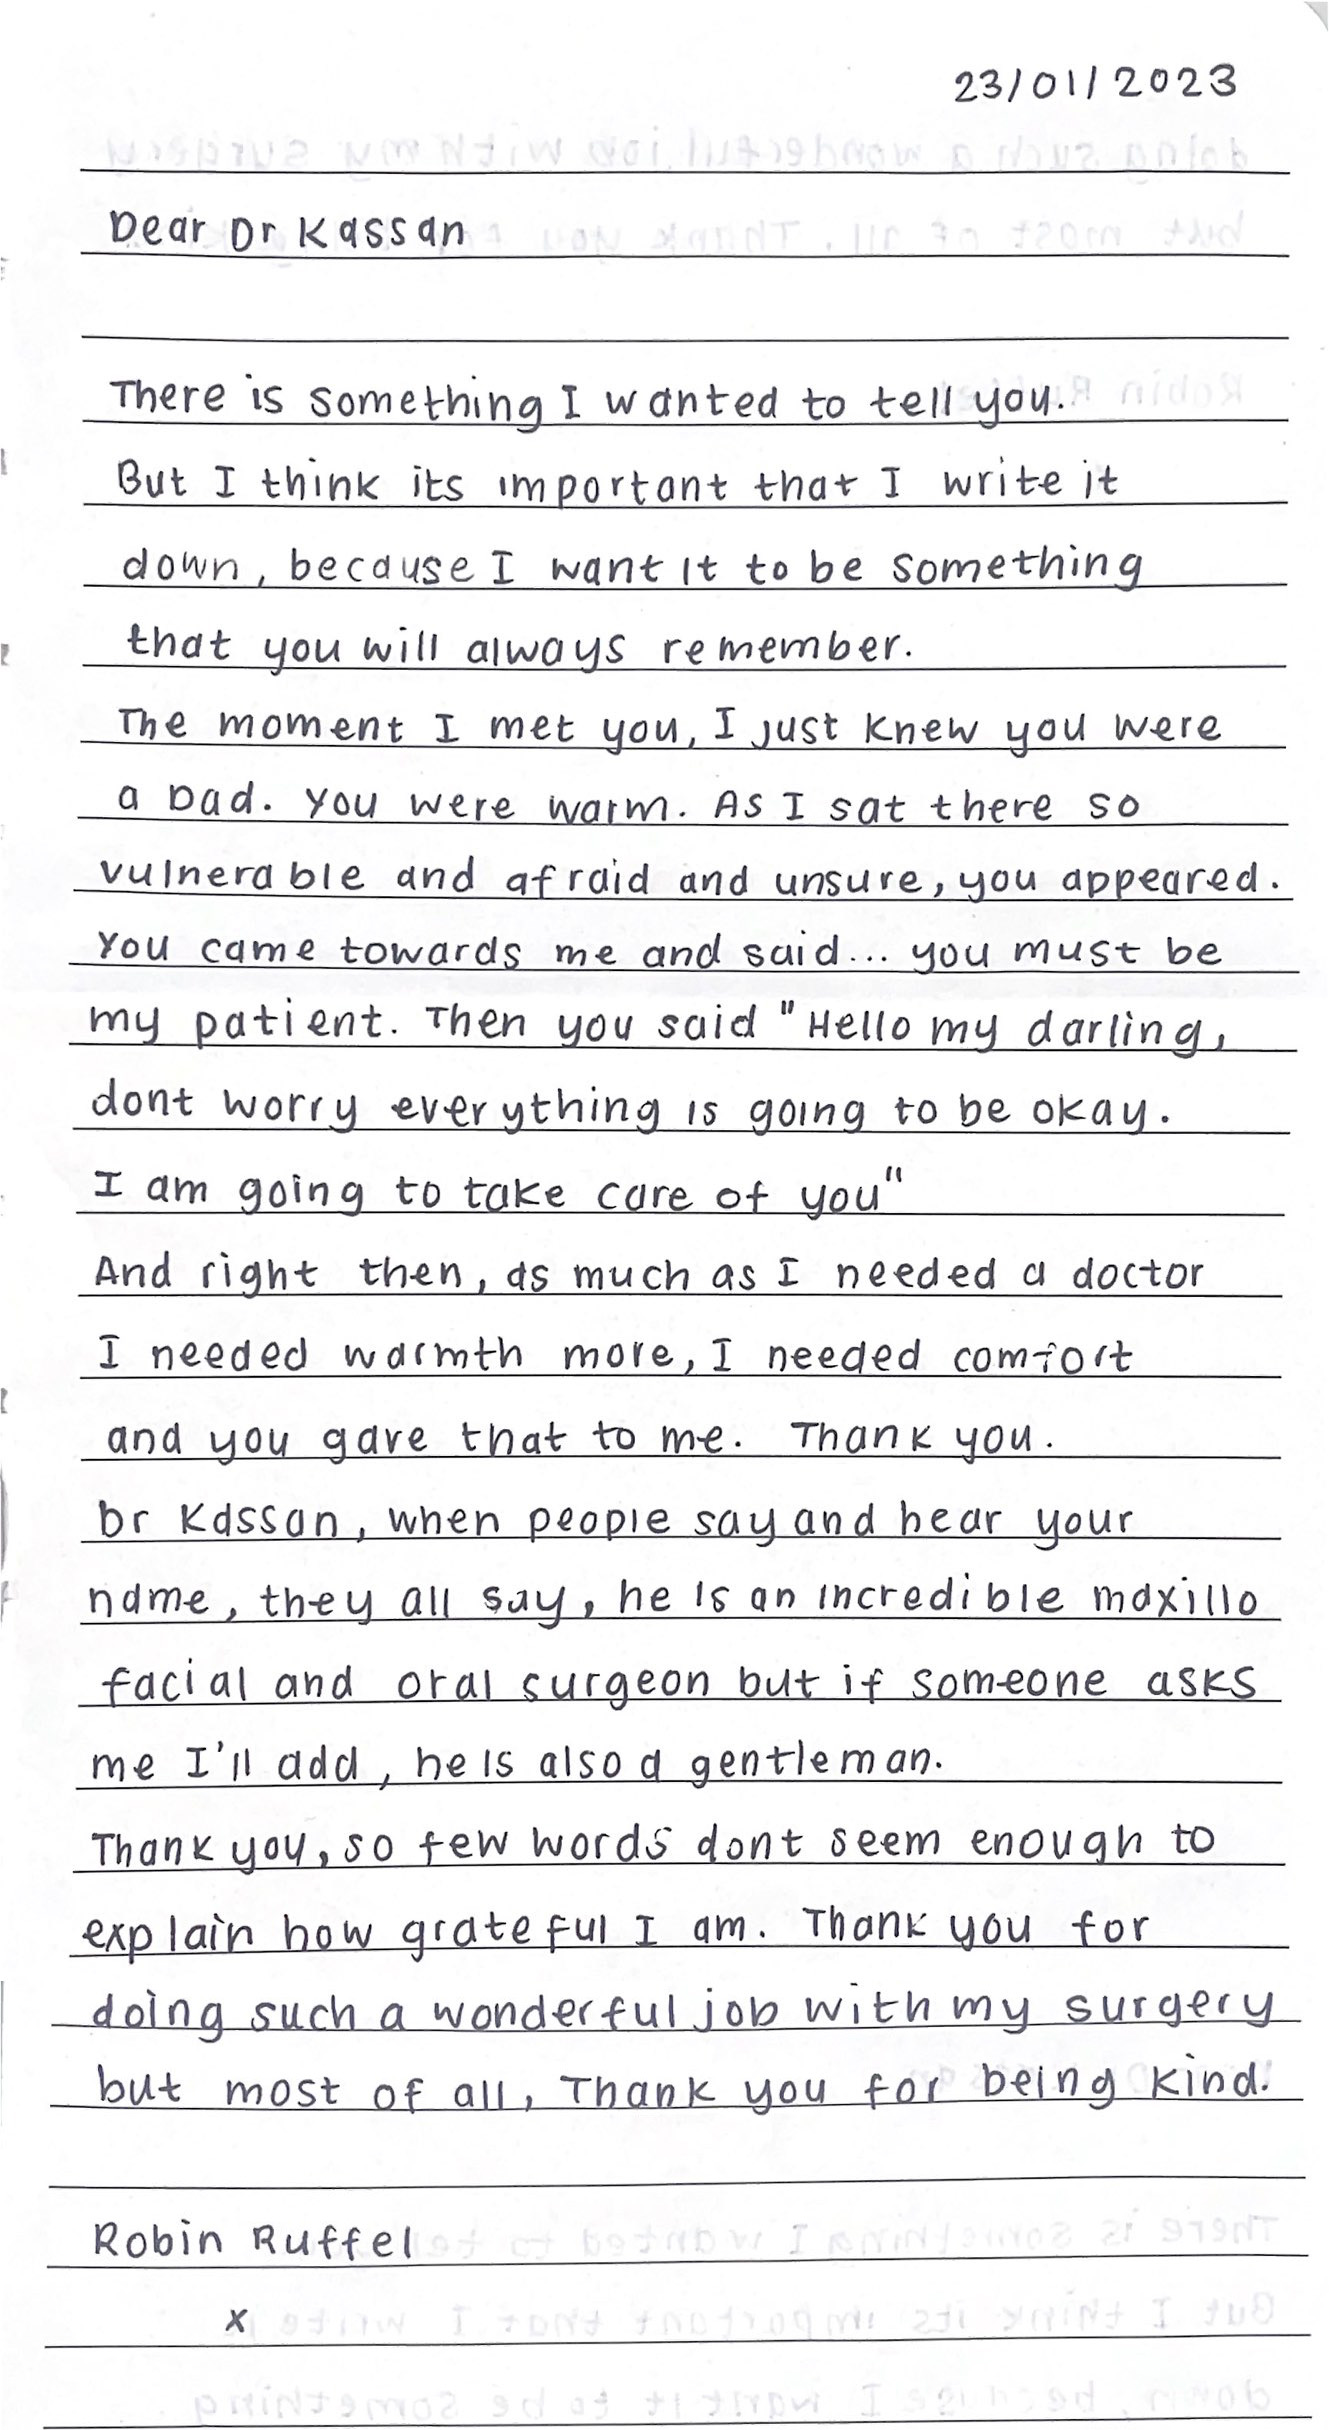 23/01/2023
Dear Dr Kassan
There is something I wanted to tell you.
But I think its important that I write it
down, because I want it to be something
that you will always remember.
The moment I met you, I just knew you were
a Dad. You were warm. As I sat there so
vulnerable and afraid and unsure, you appeared.
You came towards me and said... you must be
my patient. Then you said "Hello my darling,
dont worry everything is going to be okay.
I am going to take care of you"
And right then, as much as I needed a doctor
I needed warmth more, I needed comfort
and you gave that to me. Thank you.
Dr Kassan, when people say and hear your
name, they all say, he is an incredible maxillo
facial and oral surgeon but if someone asks
me I'll add, he is also a gentleman.
Thank you, so few words dont seem enough to
explain how grateful I am. Thank you for
doing such a wonderful job with my surgery
but most of all, Thank you for being kind.
Robin Ruffel
x